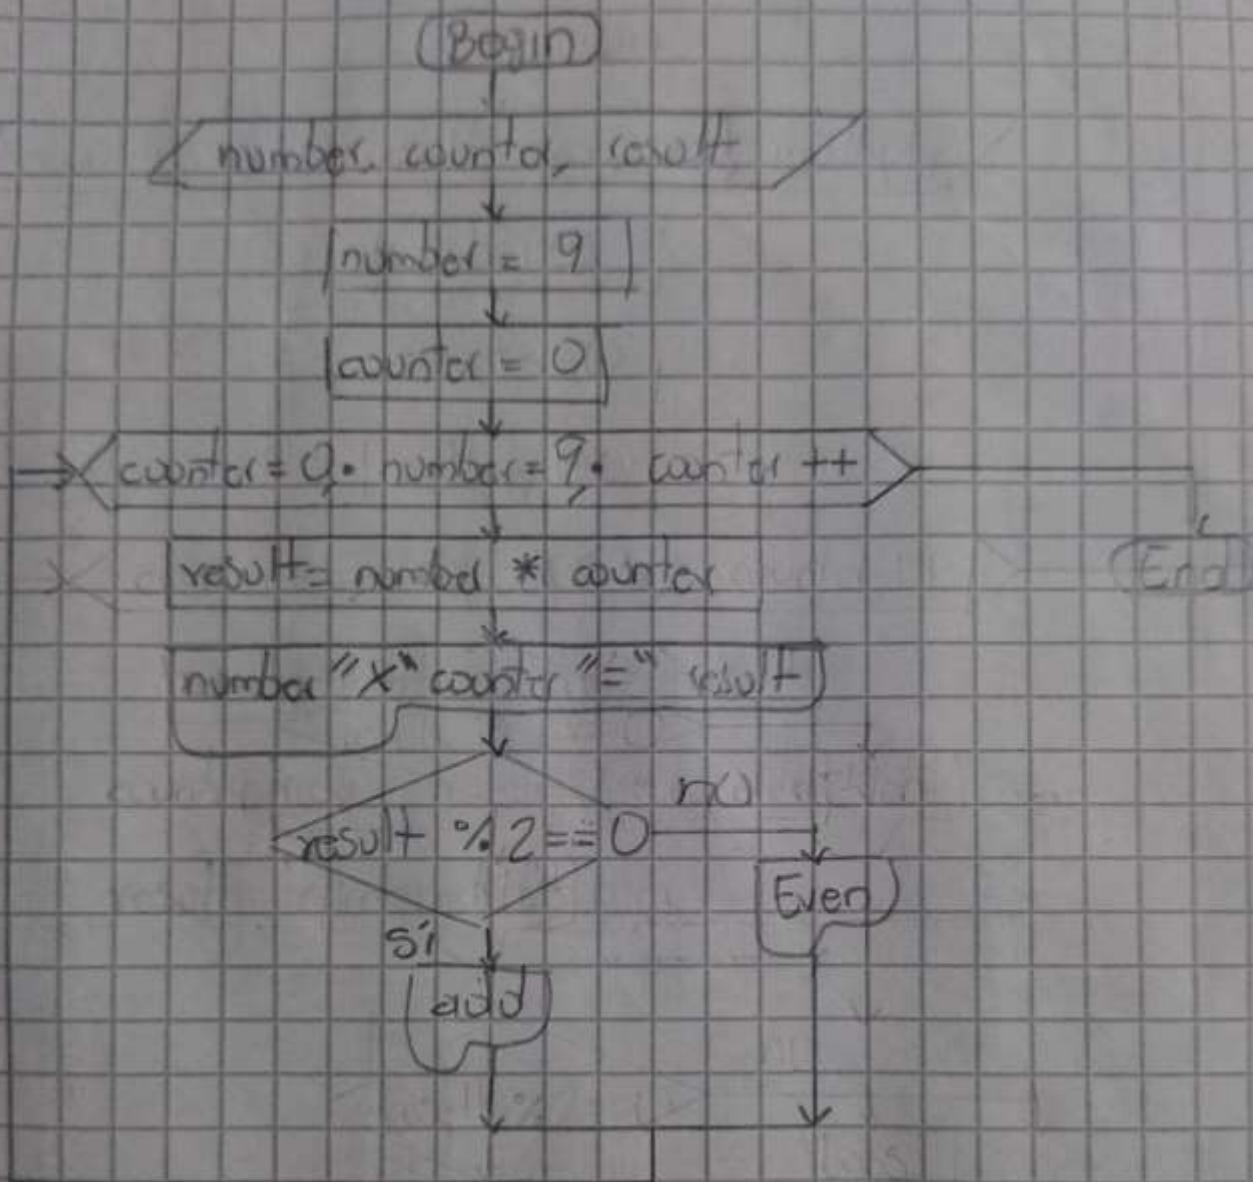 Begin
number, counter, result
number = 9
counter = 0
counter = 0; number = 9; counter ++
End
result = number * counter
number "x" counter "=" result
no
result % 2 == 0
Even
si
add